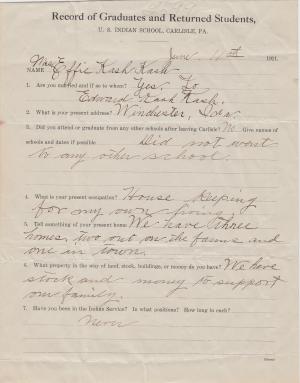 Record of Graduates and Returned Students,
U. S. INDIAN SCHOOL, CARLISLE, PA.
June 1911.
NAME Mrs. Effie Kash Kash
1. Are you married and if so to whom? Yes. To
Edward Kash Kash.
2. What is your present address? Winchester, Idaho
3. Did you attend or graduate from any other schools after leaving Carlisle? No Give names of
schools and dates if possible Did not went
to any other school.
4. What is your present occupation? House Keeping
for my own living.
5. Tell something of your present home We have three
homes. two out on the farms and
one in town.
6. What property in the way of land, stock, buildings, or money do you have? We have
stock and money to support
our family.
7. Have you been in the Indian Service? In what positions? How long in each?
Never